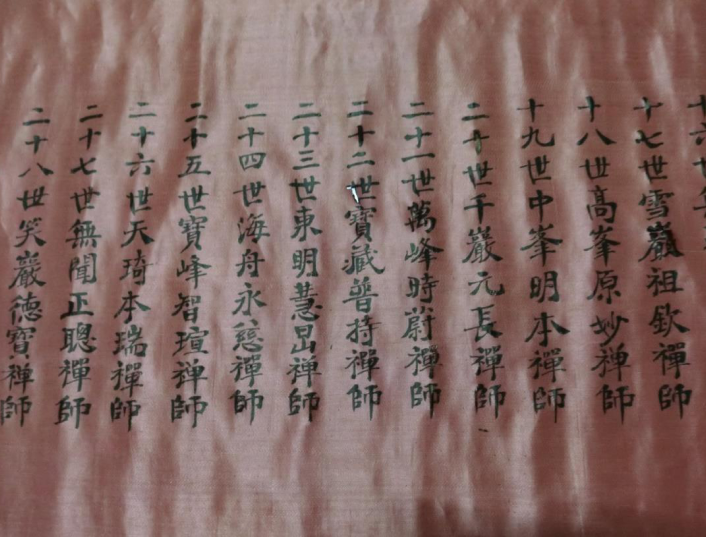 十七世雪巖祖欽禪師
十八世高峯原妙禅師
十九世中峯明本禪師
二十世千巖元長禪師
二十一世萬峰時蔚禪師
二十二世寶藏普持禪師
二十三世東明慧旵禅師
二十四世海舟永慈禪師
二十五世寶峰智瑄禅師
二十六世天琦本瑞禪師
二十七世無聞正聰禪師
二十八世笑巖德寶禅師